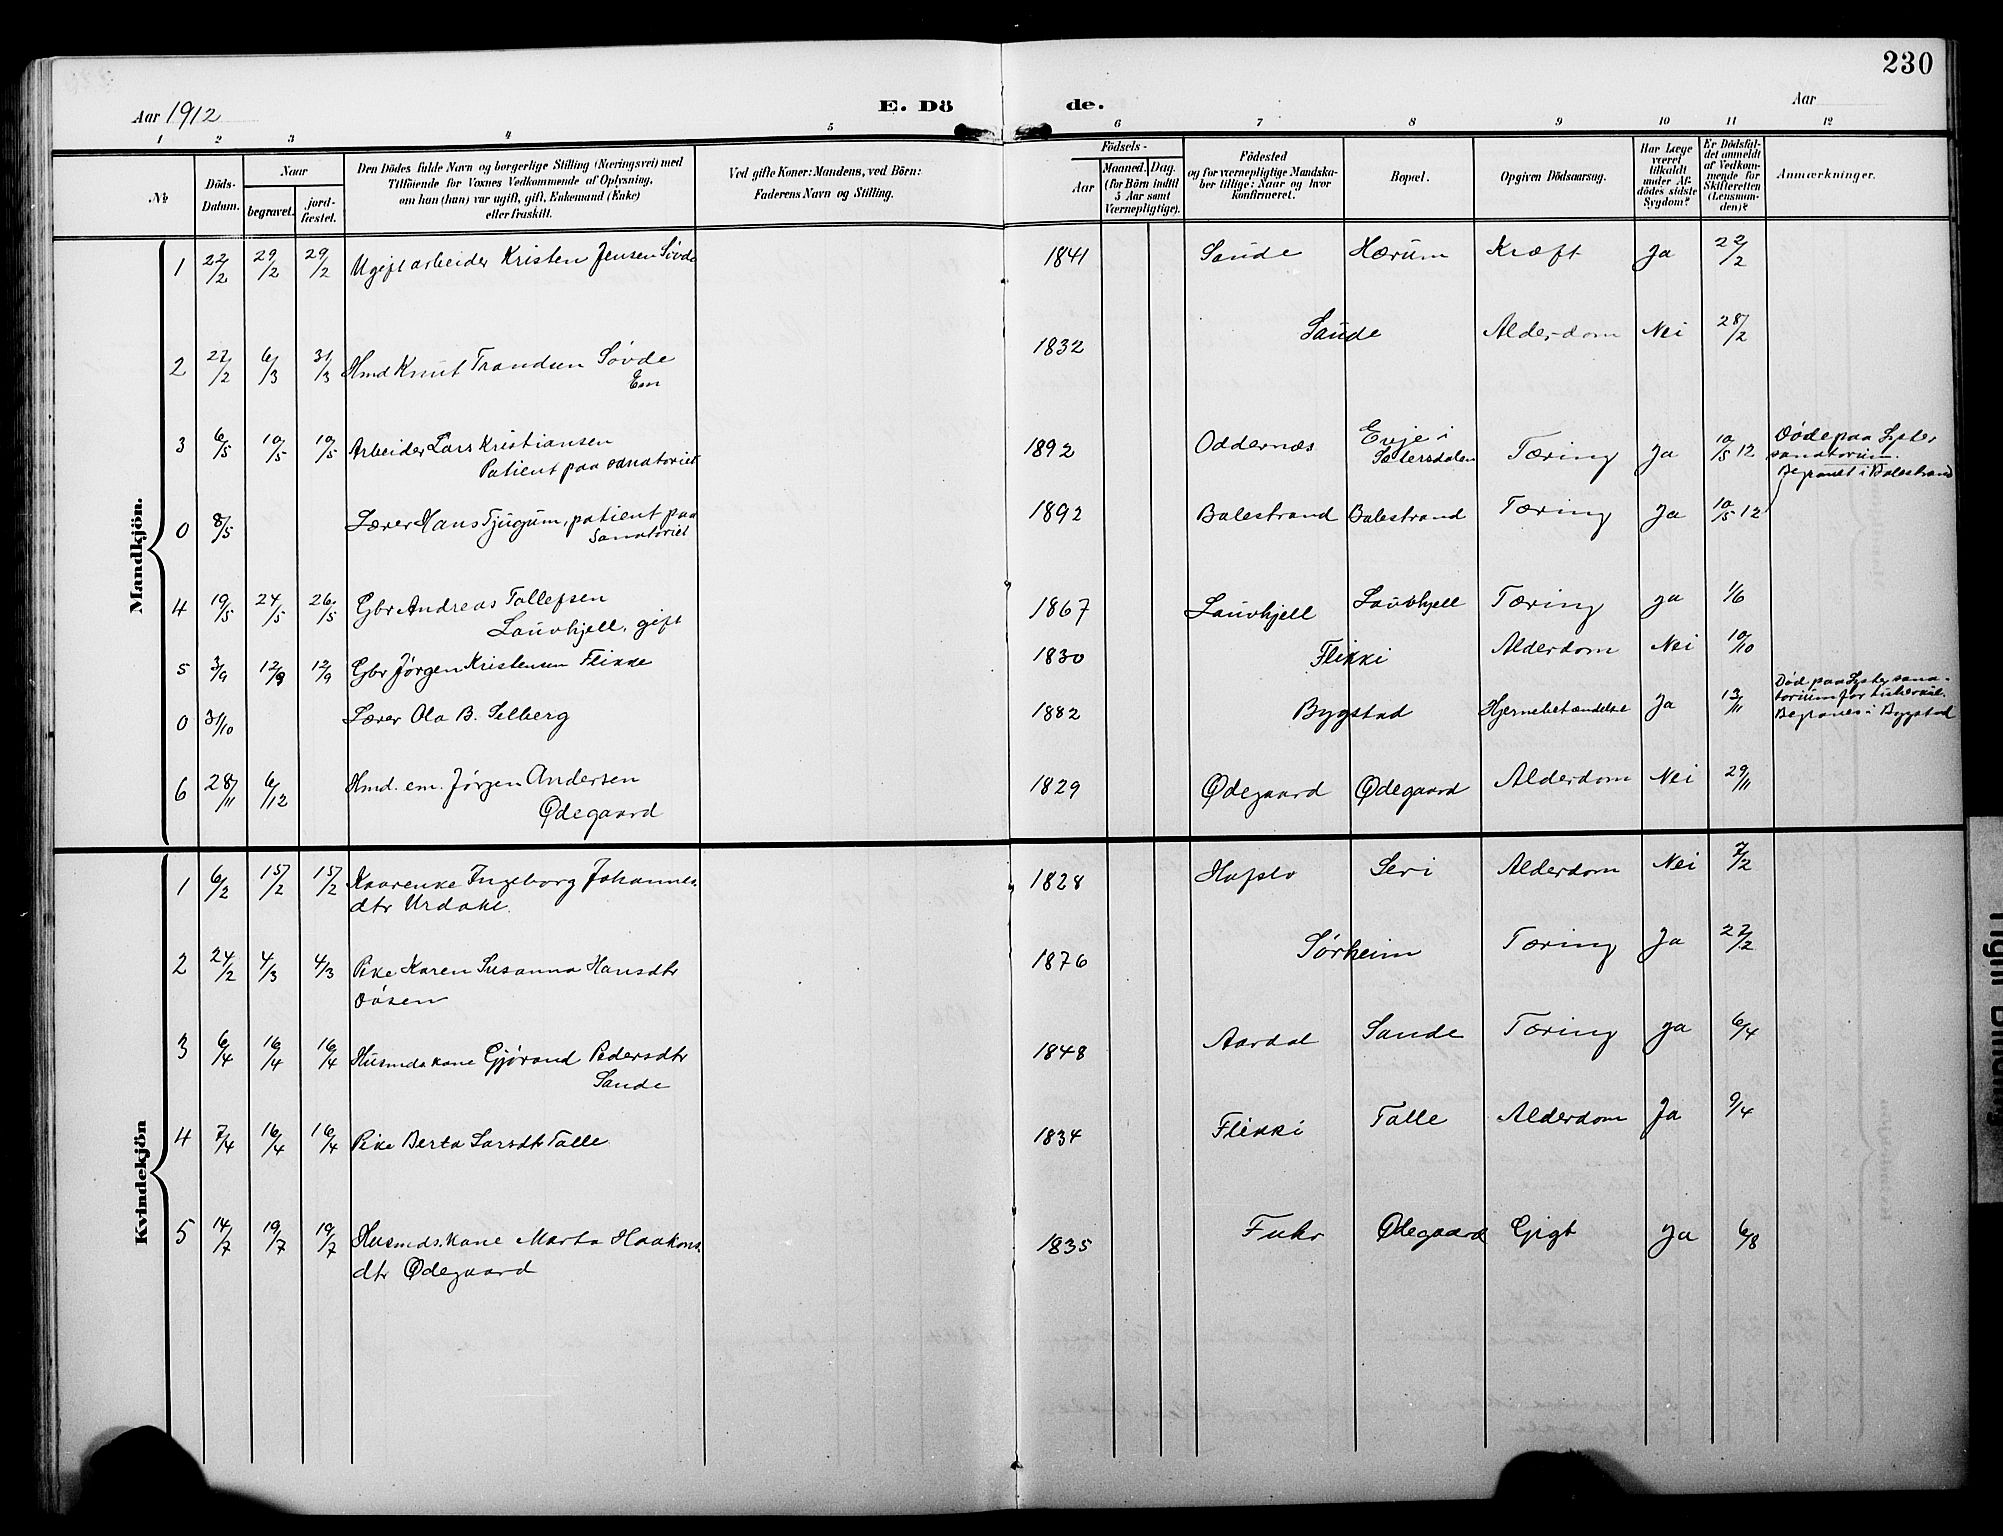 230
Aar 1912
E. Dö
de.
Aar
1 2 3 4 5 6 7 8 9 10 11 12
№
Döds-
Datum.
Naar
begravet.
jord-
fæstet.
Den Dödes fulde Navn og borgerlige Stilling (Næringsvei) med
Tilföiende for Voxnes Vedkommende af Oplysning,
om han (hun) var ugift, gift, Enkemand (Enke)
eller fraskilt.
Ved gifte Koner: Mandens, ved Börn:
Faderens Navn og Stilling.
Födsels-
Aar
Maaned. Dag.
(for Börn indtil
5 Aar samt
Værnepligtige).
Födested
og for værnepligtige Mandska-
ber tillige: Naar og hvor
konfirmeret.
Bopæl.
Opgiven Dödsaarsag.
Har Læge
været
tilkaldt
under Af-
dödes sidste
Sygdom?
Er Dödsfal-
det anmeldt
af Vedkom-
mende for
Skifteretten
(Lensman-
den)?
Anmærkninger.
Mandkjön.
1 22/2 29/2 29/2 Ugift arbeider Kristen Jensen Søvde 1841 Sande Hærum Kræft Ja 22/2
2 27/2 6/3 31/3 Hmd Knut Trondsen Søvde 1832 Sande Alderdom Nei 28/2
Em
3 6/5 10/5 10/5 Arbeider Lars Kristiansen 1892 Oddernæs Evje i Tæring Ja 10/5 12 Døde paa Lyster
Patient paa sanatoriet Sætersdalen sanatorium.
Begravet i Balestrand
0 8/5 Lærer Hans Tjugum, patient paa 1892 Balestrand Balestrand Tæring Ja 10/5 12
sanatoriet
4 19/5 24/5 26/5 Gbr Andreas Tollefsen 1867 Lauvhjell Lauvhjell Tæring Ja 1/6
Lauvhjell, gift
5 3/9 12/9 12/9 Gbr Jørgen Kristensen Flikke 1830 Flikki Alderdom Nei 10/10
0 31/10 Lærer Ola B. Selberg 1882 Bygstad Hjernebetændelse Ja 13/11 Død paa Lyster sana-
torium for tuberkul.
Begraves i Bygstad
6 28/11 6/12 Hmd. em. Jørgen Andersen 1829 Ødegaard Ødegaard Alderdom Nei 29/11
Ødegaard
Kvindekjön
1 6/2 15/2 15/2 Kaarenke Ingeborg Johannes- 1828 Hafslo Leri Alderdom Nei 7/2
dtr Urdahl.
2 24/2 4/3 4/3 Pike Karen Susanna Hansdtr 1876 Sørheim Tæring Ja 27/2
Døsen
3 6/4 16/4 16/4 Husmdskone Gjørond Pedersdtr 1848 Aardal Sande Tæring Ja 6/4
Sande
4 7/4 16/4 16/4 Pike Berta Larsdtr Talle 1834 Flikki Talle Alderdom Ja 9/4
5 14/7 19/7 19/7 Husmds.kone Marta Haakons- 1835 Fuhr Ødegaard Gigt Ja 6/8
dtr Ødegaard